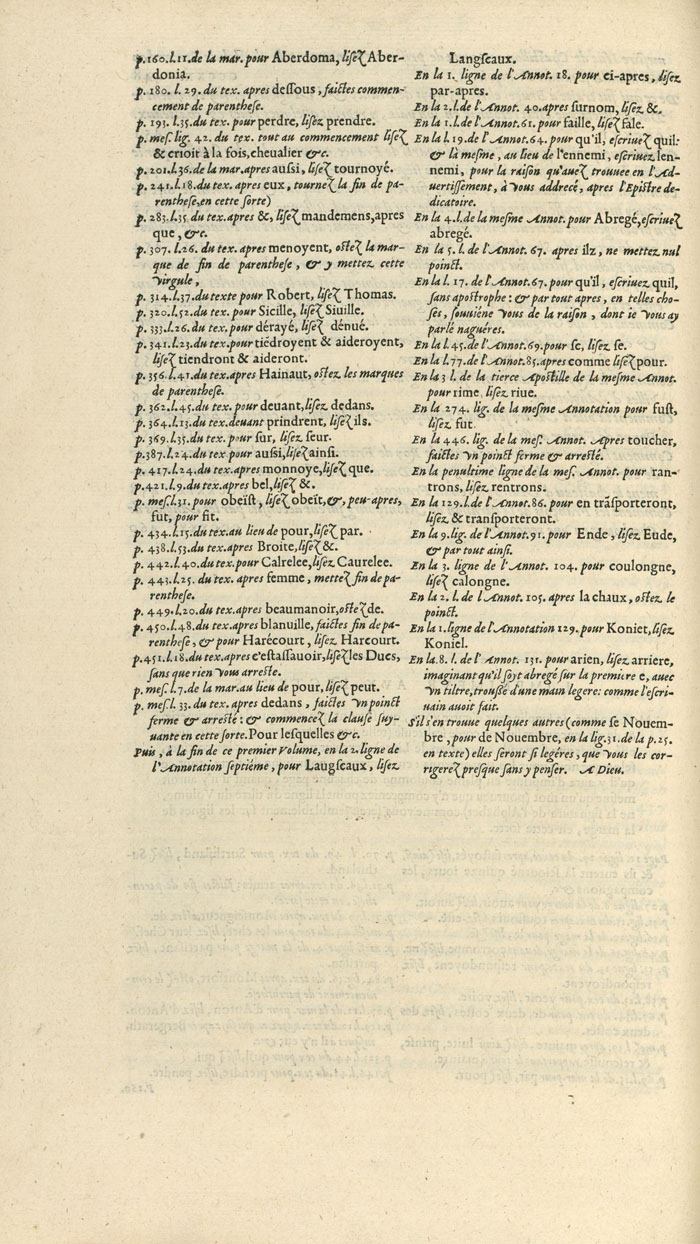 p.160.l.11.de la mar. pour Aberdoma, lisez Aber-
donia.
p. 180. l. 29. du tex. apres dessous, faictes commen-
cement de parenthese.
p. 193. l.35.du tex. pour perdre, lisez prendre.
p. mes. lig. 42. du tex. tout au commencement lisez
& crioit à la fois, cheualier &c.
p. 201.l.36.de la mar.apres aussi, lisez tournoyé.
p. 241.l.18.du tex. apres eux, tournez la fin de pa-
renthese,en cette sorte)
p. 283.l.35.du tex.apres &, lisez mandemens,apres
que, &c.
p. 307. l.26. du tex. apres menoyent, ostez la mar-
que de fin de parenthese, & y mettez cette
virgule,
p. 314.l.37.du texte pour Robert, lisez Thomas.
p. 320.l.52.du tex. pour Sicille, lisez Siuille.
p. 333.l.26.du tex. pour dérayé, lisez dénué.
p. 341.l.23.du tex.pour tiédroyent & aideroyent,
lisez tiendront & aideront.
p. 356.l.41.du tex.apres Hainaut, ostez les marques
de parenthese.
p. 362.l.45.du tex. pour deuant,lisez dedans.
p. 364.l.13.du tex.deuant prindrent, lisez ils.
p. 369.l.35.du tex. pour sur, lisez seur.
p.387.l.24.du tex. pour aussi,lisez ainsi.
p. 417.l.24.du tex.apres monnoye,lisez que.
p.421.l.9.du tex.apres bel,lisez &.
p. mes.l.31. pour obeïst, lisez obeït,&, peu-apres,
fut, pour fit.
p. 434.l.15.du tex.au lieu de pour,lisez par.
p. 438.l.53.du tex.apres Broite,lisez &.
p. 442.l.40.du tex.pour Calrelee,lisez Caurelee.
p. 443.l.25. du tex. apres femme, mettez fin de pa-
renthese.
p. 449.l.20.du tex.apres beaumanoir,ostez de.
p. 450.l.48.du tex.apres blanuille, faictes fin de pa-
renthese, & pour Harécourt, lisez Harcourt.
p.451.l.18.du tex.apres c'estassauoir,lisez les Ducs,
sans que rien vous arreste.
p. mes.l.7.de la mar.au lieu de pour,lisez peut.
p. mes.l. 33. du tex. apres dedans, faictes vn poinct
ferme & arresté: & commencez la clause suy-
uante en cette sorte.Pour lesquelles &c.
Puis, à la fin de ce premier Volume, en la 2.ligne de
l'Annotation septiéme, pour Laugseaux, lisez
Langseaux.
En la 1. ligne de l'Annot. 18. pour ci-apres, lisez
par-apres.
En la 2.l.de l'Annot. 40.apres surnom, lisez &.
En la 1.l.de l'Annot.61. pour faille, lisez fale.
En la l.19.de l'Annot.64. pour qu'il, escriuez quil:
& là mesme, au lieu de l'ennemi, escriuez len-
nemi, pour la raison qu'auez trouuee en l'Ad-
uertissement, à vous addrecé, apres l'Epistre de-
dicatoire.
En la 4.l.de la mesme Annot. pour Abregé,escriuez
abregé.
En la 5. l. de l'Annot. 67. apres ilz, ne mettez nul
poinct.
En la l. 17. de l'Annot.67. pour qu'il, escriuez quil,
sans apostrophe: & par tout apres, en telles cho-
ses, souuiéne vous de la raison, dont ie vous ay
parlé naguéres.
En la l.45.de l'Annot.69.pour se, lisez se.
En la l.77.de l'Annot.85.apres comme lisez pour.
En la 3 l. de la tierce Apostille de la mesme Annot.
pour rime, lisez riue.
En la 274. lig. de la mesme Annotation pour fust,
lisez fut.
En la 446. lig. de la mes. Annot. Apres toucher,
faictes vn poinct ferme & arresté.
En la penultime ligne de la mes. Annot. pour ran-
trons, lisez rentrons.
En la 129.l.de l'Annot.86. pour en trãsporteront,
lisez & transporteront.
En la 9.lig. de l'Annot.91. pour Ende, lisez Eude,
& par tout ainsi.
En la 3. ligne de l'Annot. 104. pour coulongne,
lisez calongne.
En la 2. l. de l'Annot. 105. apres la chaux, ostez le
poinct.
En la 1.ligne de l'Annotation 129.pour Koniet,lisez
Koniel.
En la.8. l. de l'Annot. 131. pour arien, lisez arriere,
imaginant qu'il soyt abregé sur la premiere e, auec
vn tiltre,troussé d'vne main legere: comme l'escri-
uain auoit fait.
S'il s'en trouue quelques autres (comme se Nouem-
bre, pour de Nouembre, en la lig.31.de la p.25.
en texte) elles seront si legéres, que vous les cor-
rigerez presque sans y penser. A Dieu.